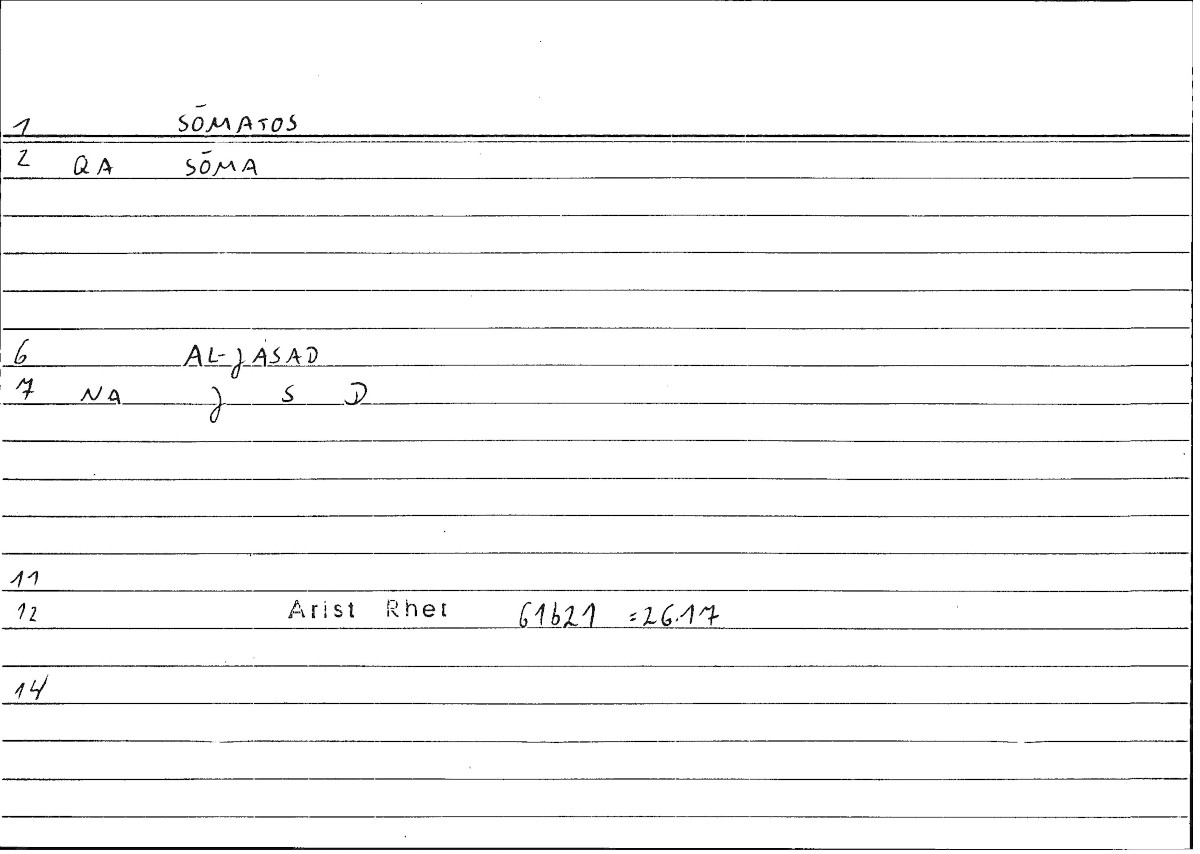 1 SŌMATOS
2 QA SŌMA
6 AL-JASAD
7 NA J S D
11
12 Arist Rhet 61b21 =26.17
14